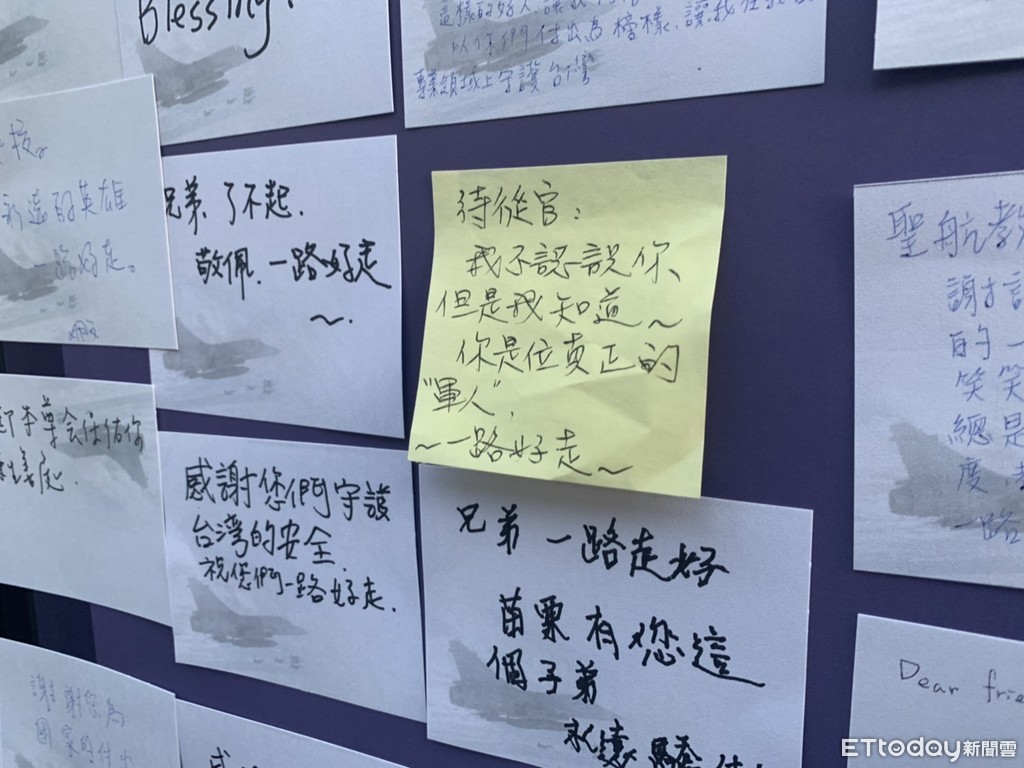 Blessing!
以你們付出為榜樣,讓我在
專業領域上守護台灣
永遠的英雄
一路好走。
兄弟、了不起.
敬佩、一路好走
~.
待從官:
我不認識你、
但是我知道~
你是位真正的
"軍人",
~一路好走~
聖航教
謝謝
的一
笑笑
總是
度
一路
感謝您們守護
台湾的安全.
祝您們一路好走.
兄弟 一路走好
苗栗有您這
個子弟
永遠
謝謝您為
國家的付出
Dear frie
ETtoday新聞雲